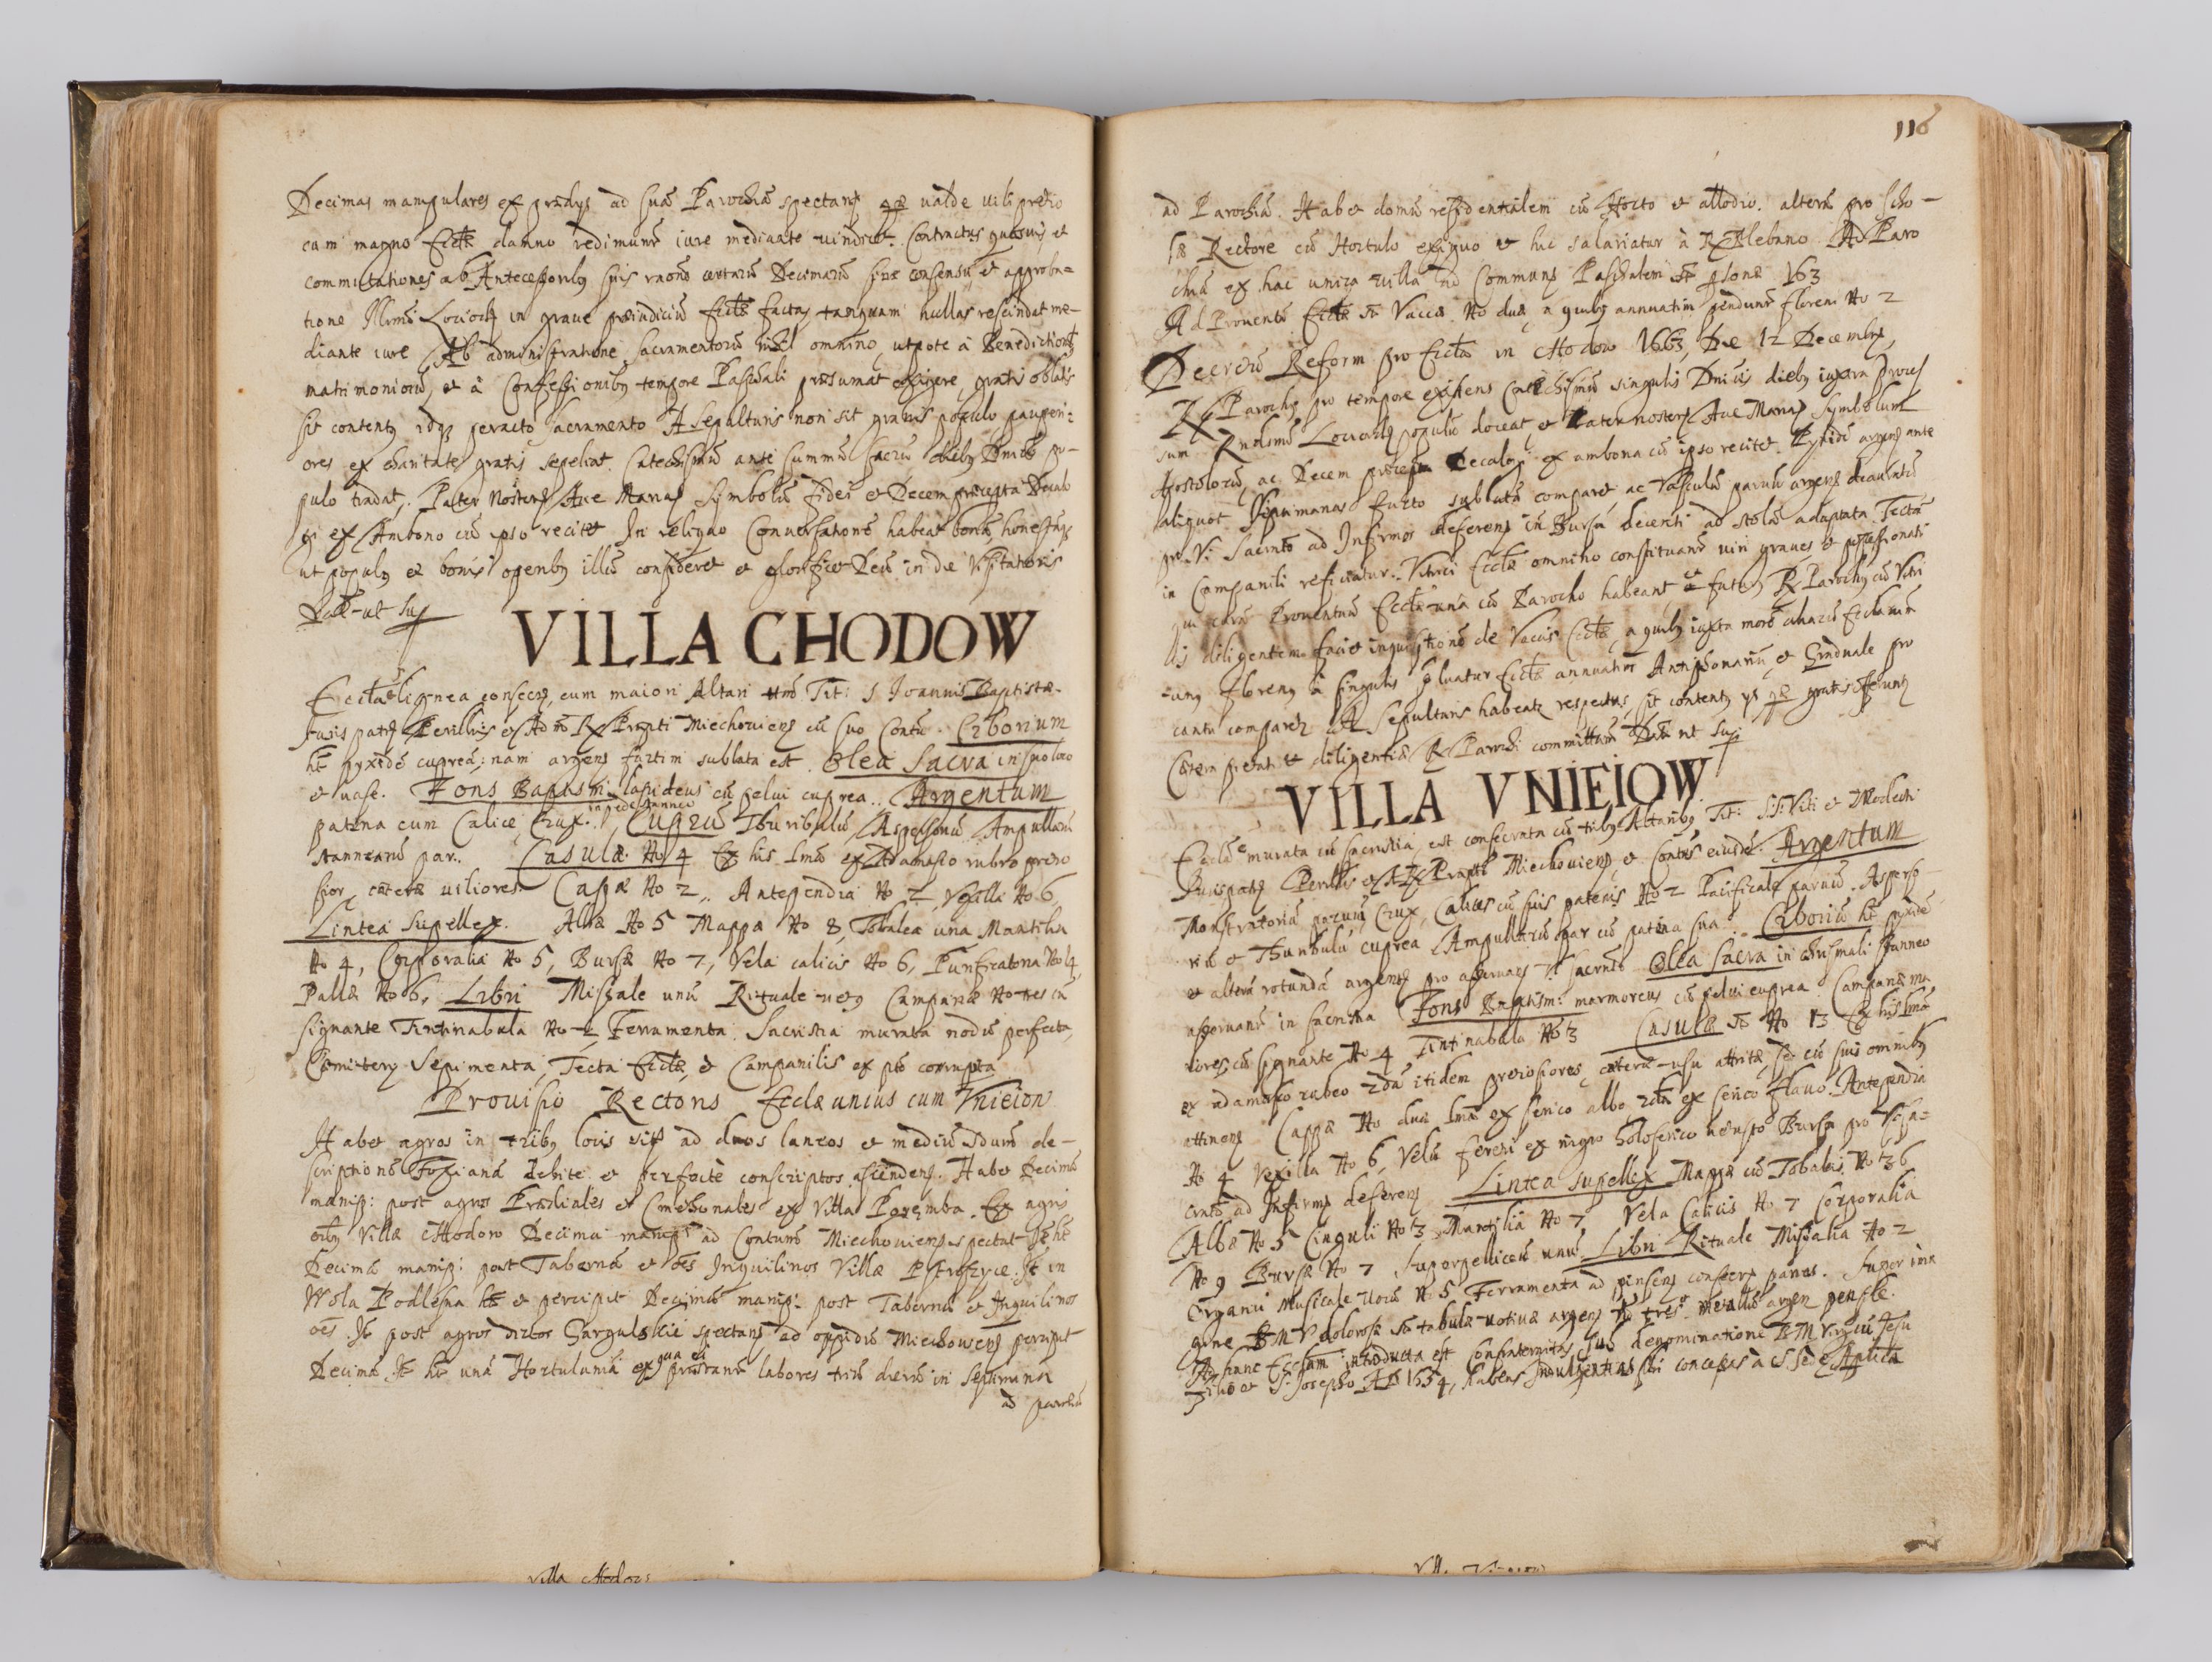 Decimas manipulares ex prædys ad suā Parochiā spectant quæ ualde uili pretio
cum magno Eccłæ damno redimunt iure mediante uindicet. Contractus quosuis et
commutationes ab Antecessoribus suis raone certarū Decimarū sine consensu et approba=
tione Illrmi Loci in graue præiudiciū Eccłæ factas tanquam nullas rescindat me-
diante iure Ab administratione Sacramentorū nihil omnino, utpote à Benedictione
matrimoniorū, et à Confessionibus tempore Paschali præsumat exigere, gratis oblatis
sit contentus idque peracto Sacramento A sepulturis non sit grauis populo pauperi:
ores ex charitate gratis sepeliat. Catechismū ante summū sacrū diebus Dnicis po-
pulo tradat, Pater Noster Aue Maria Symbolū fidei et Decem præcepta Decalo
gi ex Ambono cū ipso recitet In reliquo Conuersatione habeat bonā honestam
ut populus ex bonis operibus illū consideret et glorificet Deū in die Visitationis
Datt-ut Sup
VILLA CHODOW
Eccła lignea consecr, cum maiori Altari uno Tit: S Joannis Baptistæ.
Juris patr Perillris et Ad m R Præpti Miechouiens cū suo Contu. Ciborium
ht pyxidē cupreā; nam argent furtim sublata est. Olea Sacra in suo loco
et uase. Fons Baptismi lapideus cū pelui cuprea. Argentum
patena cum Calice, Crux. in pede stanneo Cuprū Thuribulū, Aspersoriū Ampullarū
stannearū par. Casulæ No 4 Ex his Imā ex Adamasco rubro pretio
sior, cæteræ uiliores. Capæ No 2. Antependia No 2, Vexilla No 6,
Lintea Supellex. Albæ No 5 Mappæ No 8, Tobalea una Mantilia
No 4, Corporalia No 5, Bursæ No 7, Vela calicis No 6, Purificatoria No 4,
Pallæ No 6, Libri Missale unū Rituale uetus Campanæ No tres cū
signante Tintinabula No 2, Ferramenta. Sacristia murata nodū perfecta,
Cæmitery Sepimenta, Tecta Eccłæ, et Campanilis ex pte corrupta
Prouisio Rectoris Ecclæ unius cum Vnieiow
Habet agros in tribus locis sitos ad duos laneos et mediū sdum de-
scriptionē Foxianā debite et perfectè conscriptos ascendens. Habet Decimā
manip: post agros Prædiales et Cmethonales ex Villa Poręmba. Ex agris
oibus Villæ Chodow Decima manip: ad Contum Miechouiens spectat It ht
Decimā manip: post Tabernā et oēs Inquilinos Villæ Pstroszyce. It in
Wola Podlesna ht et percipit Decimā manip: post Tabernā et Inquilinos
oēs. It post agros dictos Gargulskie spectans ad oppidū Miechouiens percipit
Decimā. It ht unā Hortulaniā ex qua ei præstant labores triū dierū in Septimana
ad paroch
Villa Chodow
116
ad Parochiā. Habet domū residentialem cū Horto et allodio. alterā pro Scho-
læ Rectore cū Hortulo exiguo et hic salariatur à R Plebano Ad Paro
chiā ex hac unica uilla ad Communs Paschalem st psonæ 163
Ad Prouentū Eccłæ st Vaccæ No duæ, a quibus annuatim pendunt floreni No 2
Decretū Reform pro Eccła in Chodow 1663, Die 12 Decembr,
R Parochus pro tempore existens Catechismū singulis Dnicis diebus iuxta proces
sum Rndsimi Loci populū doceat, et Pater noster Aue Maria Symbolum
Apostolorū, ac Decem præcepta Decalogi ex ambona cū ipso recitet. Pyxidē argent ante
aliquot Septimanas furto sublatā comparet ac Vasculū paruū argent deauratū
pro V. Sacrmto ad Infirmos deferens in Bursa decenti ad stolā adaptata. Tecta
in Campanili reficiatur. Vitrici Eccłæ omnino constituant uiri graues et possessionati
qui curā Prouentuū Eccłæ una cū Parocho habeant et futur R Parochus cū Vitri
cis diligentem faciet inquisitionē de Vaccis Eccłæ, a quibus iuxta morē aliarū Eccłarum
unus florenus à singulis soluatur Eccłæ annuatim Antiphonariū, et Graduale pro
cantu comparet A Sepulturis habeat respectus, sit contentus ys quæ gratis offerunt
Cætera pietati et diligentiæ R Parochi committum Datt ut Sup
VILLA VNIEIOW
Eccła murata cū Sacristia, est consecrata cū tribus Altaribus Tit: S.S. Viti et Modesti
Jurispatr Perillris et A R Præpti Miechouiens, et Contus eiusdē. Argentum
Monstratoriū paruū Crux, Calices cū suis patenis No 2 Pacificale paruū. Asperso-
riū et Thuribulū cuprea Ampullarū par cū patina sua. Ciboriū ht pyxidē
et alterā rotundā argent pro asseruans V. Sacrmto Olea Sacra in chrismali stanneo
asseruant in Sacristia Fons Baptism: marmoreus cū pelui cuprea. Campanæ ma
iores, cū signante No 4 Tintinabula No 3 Casulæ st No 13 Ex his Imā
ex adamasco rubeo 2da itidem pretiosiores cæteræ usu attritæ, se cū suis omnibus
attinens Cappæ No duæ Imā ex serico albo, 2da ex serico flauo. Antependia
No 4 Vexilla No 6, Velū feretri ex nigro holoserico uetusto Bursa pro V. Sa=
crmto ad Infirmos deferens Lintea supellex Mappæ cū Tobaleis No 36
Albæ No 5 Cinguli No 3 Mantilia No 7, Vela Calicis No 7 Corporalia
No 9 Bursæ No 7 Superpelliceū unū. Libri Rituale Missalia No 2
Organū Musicale uocū No 5 Ferramenta ad pinsens consecrs panes. Super ima
gine B M V dolorosæ st tabulæ uotiuæ argent No tres metallis argen pensle.
Ad hanc Ecclam introducta est Confraternitas sub denominatione B M Virginis Jesu
Filio et S. Josepho A D 1654, habens Indulgentias sibi concessas à S. Sede Aplica
Villa Vnieiow